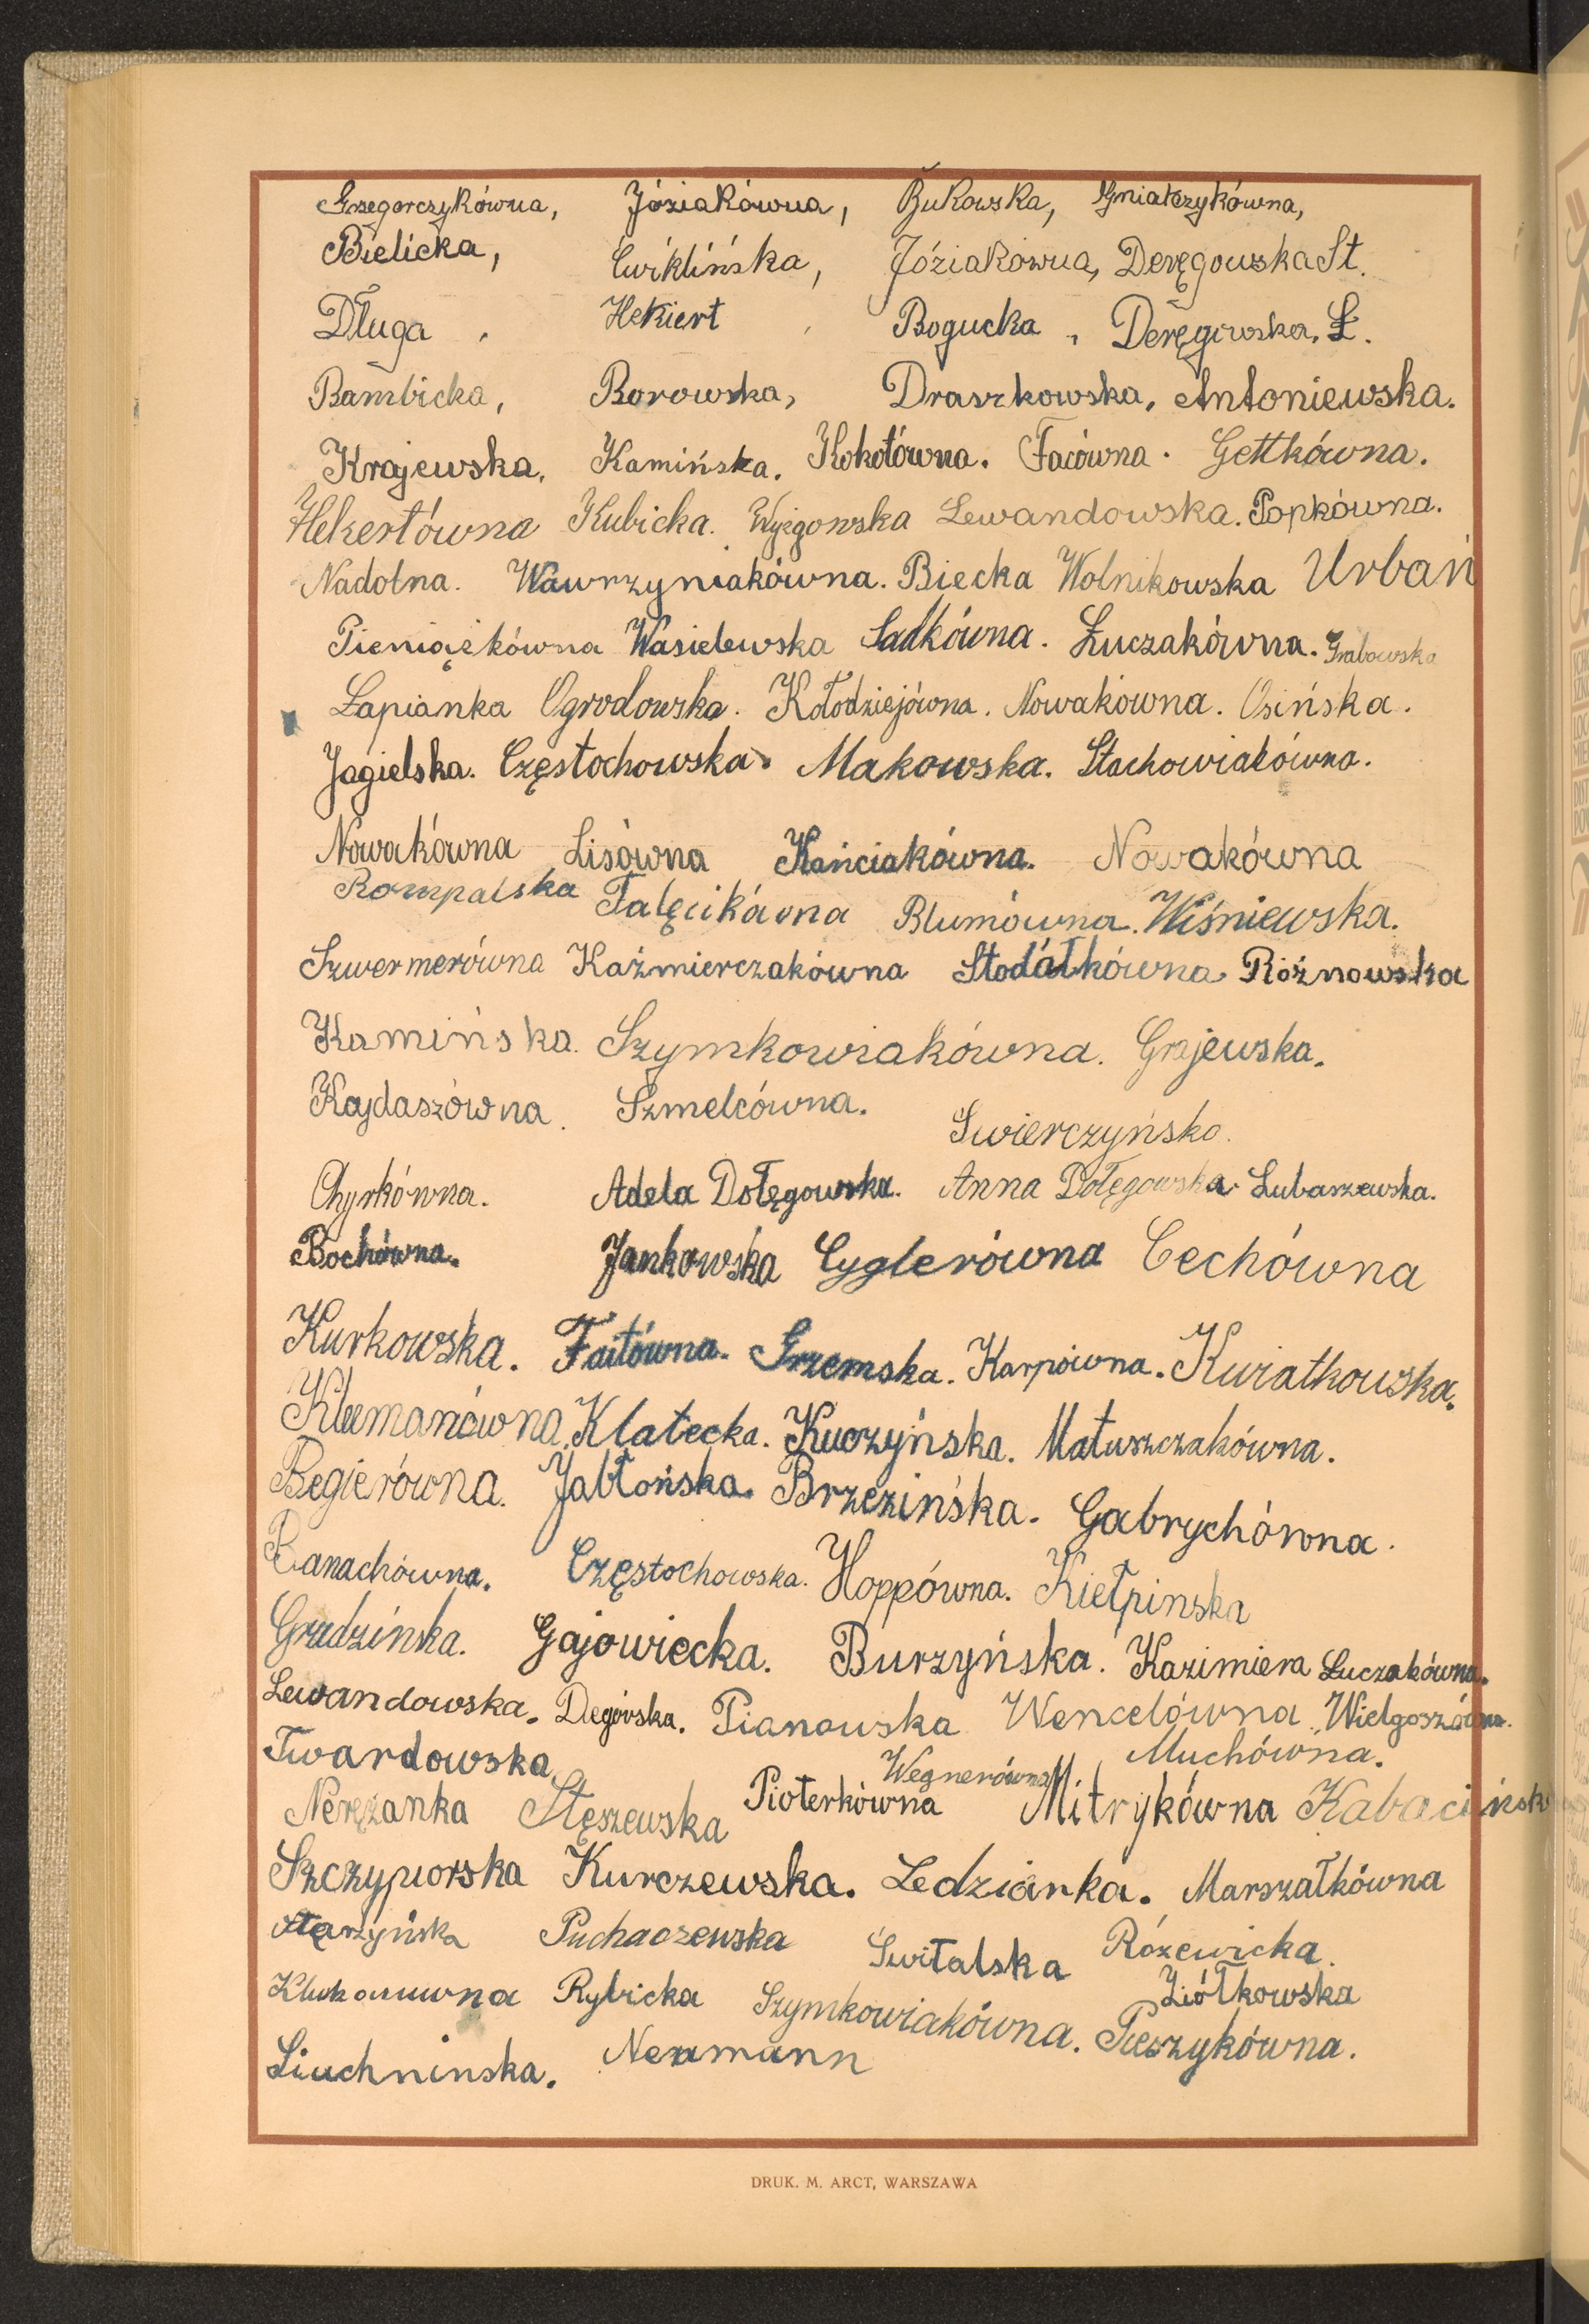 Grzegorczykówna, Józiakówna, Bukowska, Igniatczykówna,
Bielicka, Ćwiklińska, Józiakówna, Deręgowska St.
Długa, Hekiert, Bogucka, Deręgowska, Ł.
Bambicka, Borowska, Draszkowska, Antoniewska.
Krajewska, Kamińska. Kokotówna. Facówna. Gettkówna.
Hekertówna Kubicka. Lewandowska. Popkówna.
Nadolna. Wawrzyniakówna. Biecka Wolnikowska Urban
Pieniążkówna Wasielewska Sadkówna. Łuczakówna. Grabowska
Łapianka Ogrodowska. Kołodziejówna. Nowakówna. Osińska.
Jagielska. Częstochowska. Makowska. Stachowiakówna.
Nowakówna Lisówna Kańciakówna. Nowakówna
Rompalska Falęcikówna Blumówna. Wiśniewska.
Szwermerówna Kaźmierczakówna Stodółkówna Różnowska
Kamińska. Szymkowiakówna. Grajewska.
Kajdaszówna. Szmelcówna.
Swierczyńska.
Chyrkówna. Adela Dołęgowska. Anna Dołęgowska Lubaszewska.
Bochówna. Jankowska Cyglerówna Cechówna
Kurkowska. Faitówna. Grzemska. Karpówna. Kwiatkowska.
Klemanówna. Klatecka. Kuczyńska. Matuszczakówna.
Begierówna. Jabłońska. Brzezińska. Gabrychówna.
Banachówna. Częstochowska. Hoppówna. Kiełpinska
Grudzińska. Gajowiecka. Burzyńska. Kazimiera Łuczakówna.
Lewandowska. Degórska. Pianowska Wencelówna. Wielgoszówna.
Twardowska Wegnerówna Muchówna.
Neręzanka Stęszewska Pioterkówna Mitrykówna Kabacińsk
Szczypiorska Kurczewska. Ledzianka. Marszałkówna
Puchaczewska Świtalska Rózewicka.
Rybicka Szymkowiakówna. Ziółkowska
Liuchninska. Neumann Pieszykówna.
DRUK. M. ARCT, WARSZAWA